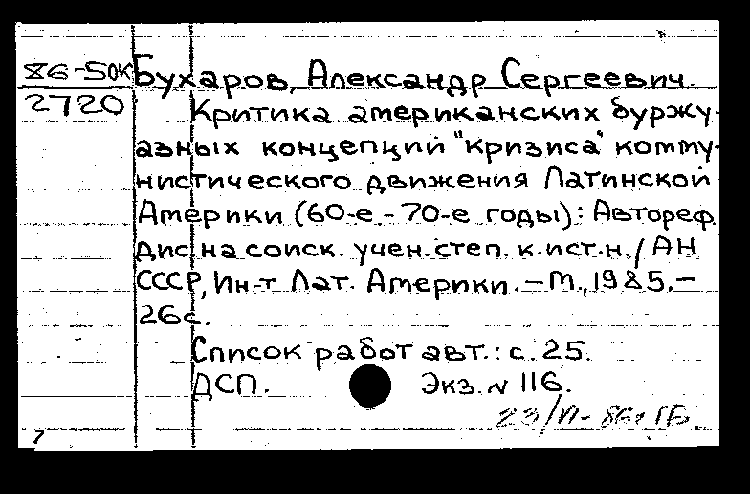 86-50к Бухаров, Александр Сергеевич.
2720 Критика американских буржу-
азных концепций "кризиса" комму-
нистического движения Латинской
Америки (60-е - 70-е годы): Автореф.
дис. на соиск. учен. степ. к. ист. н. / АН
СССР, Ин-т Лат. Америки. - М., 1985. -
26 с.
Список работ авт.: с. 25.
ДСП. Экз. N 116.
23/VI-86г ГБ